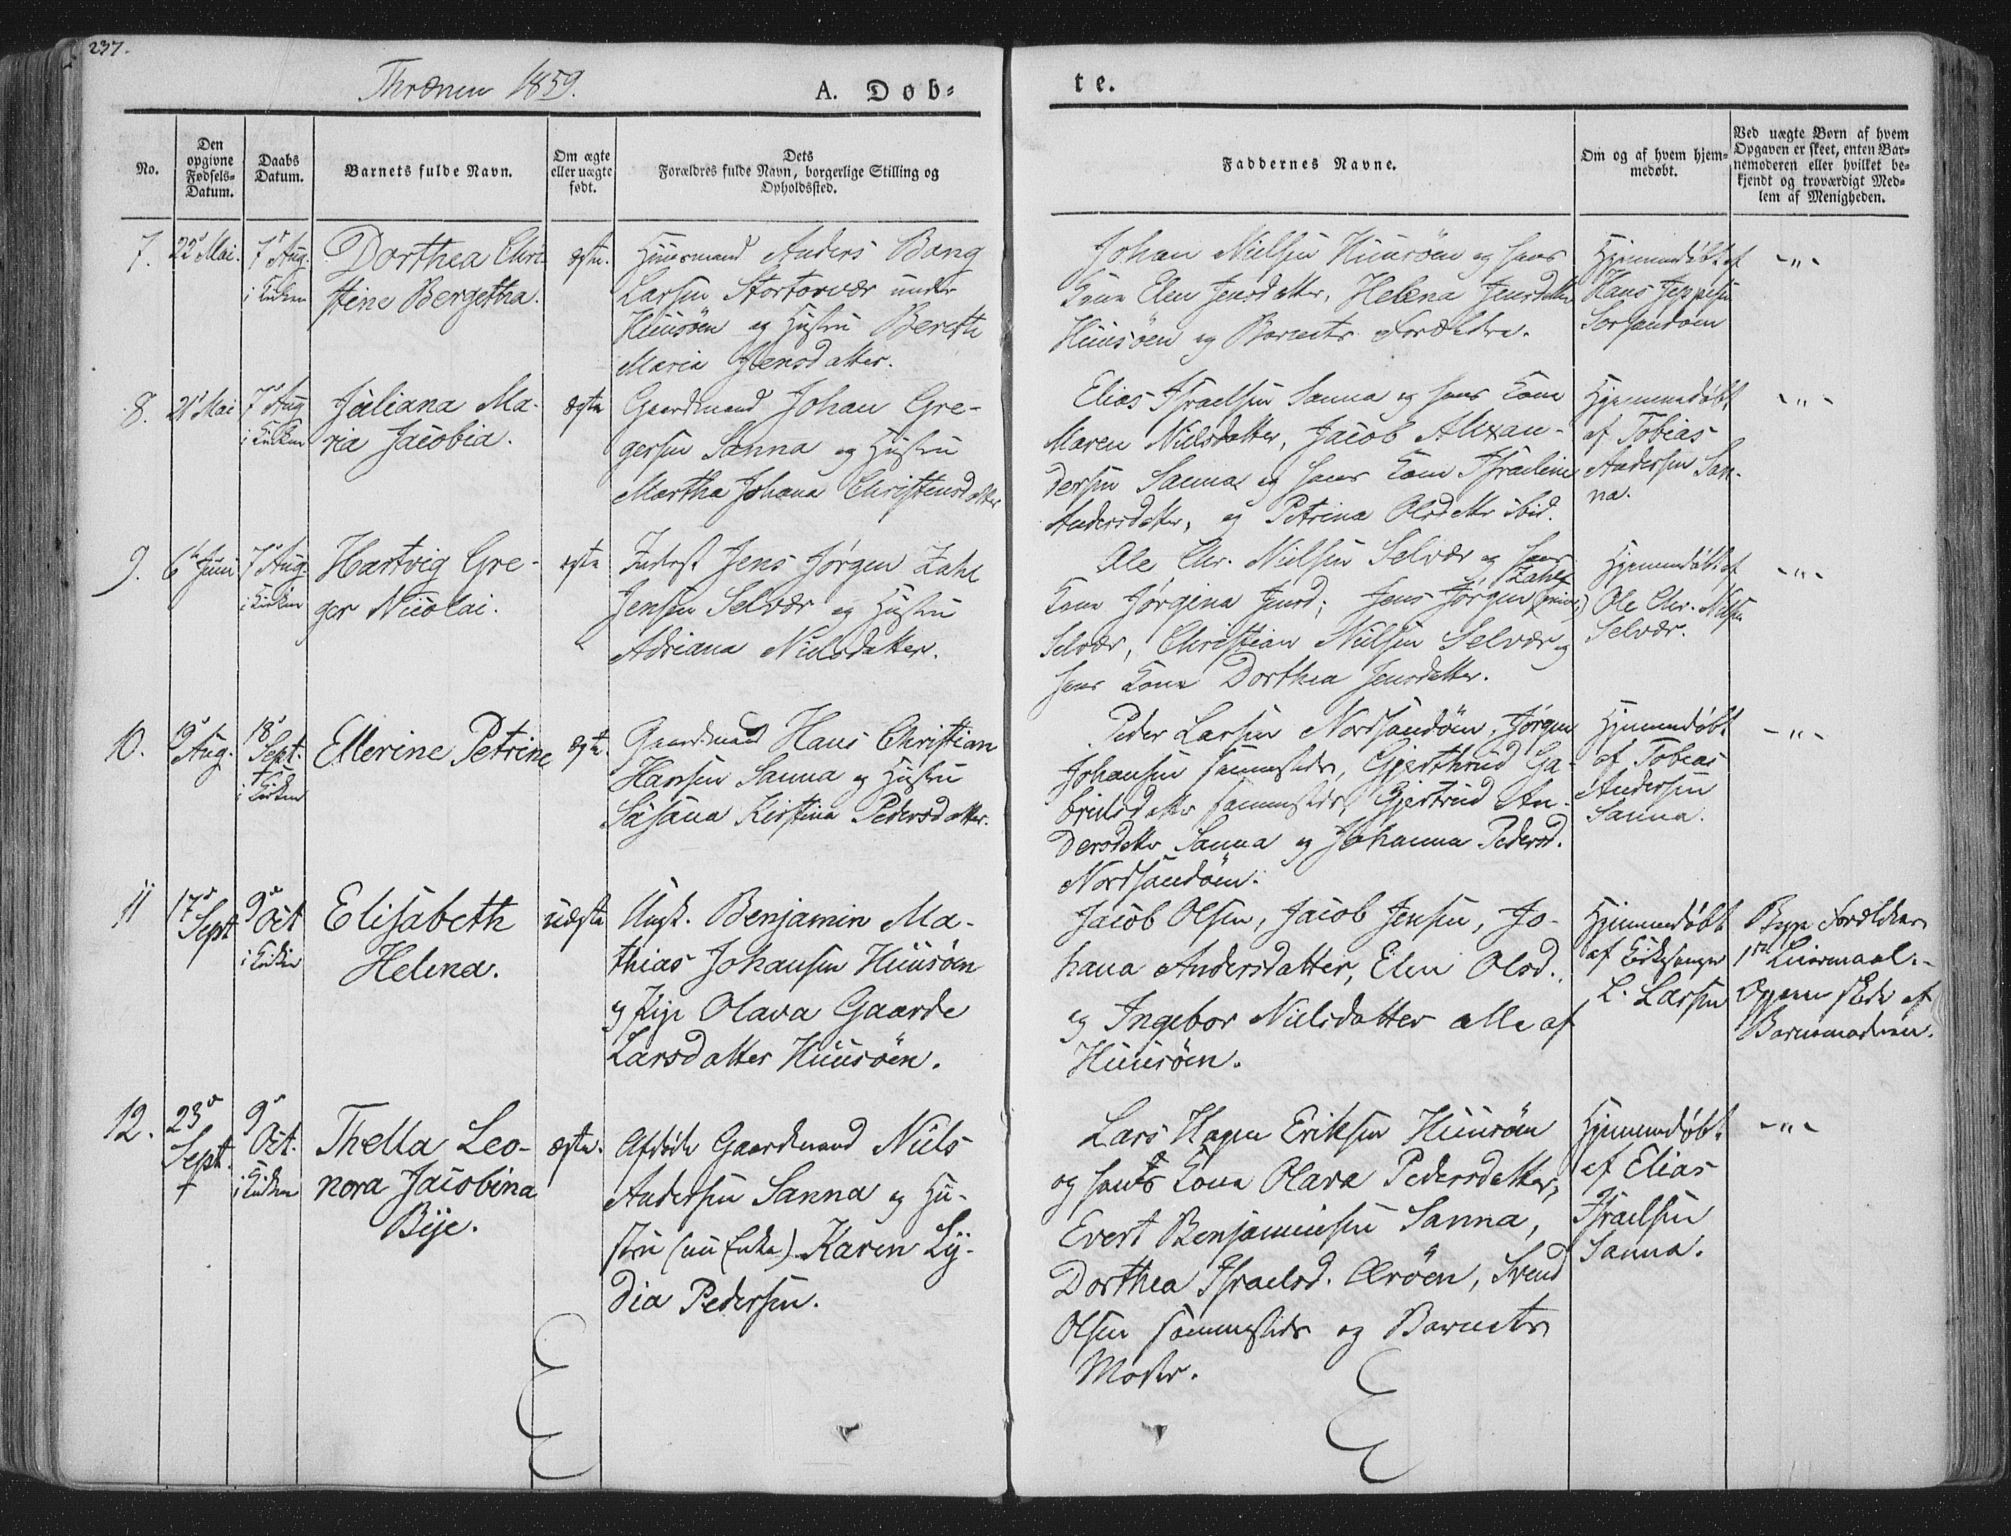 237.
Thrænen 1859.
A. Døb=
te.
No.
Den opgivne Fødsels-Datum.
Daabs Datum.
Barnets fulde Navn.
Om ægte eller uægte født.
Dets Forældres fulde Navn, borgerlige Stilling og Opholdssted.
Faddernes Navne.
Om og af hvem hjem-medøbt.
Ved uægte Børn af hvem Opgaven er skeet, enten Bar-nemoderen eller hvilket be-kjendt og troværdigt Med-lem af Menigheden.
7.
22 Mai.
7 Aug.
i Kirken
Dorthea Chri
stine Bergetha.
ægte.
Huusmand Anders Bang
Larsen Stortorvær under
Huusøen og Hustru Bereth
Maria Jensdatter.
Johan Nielsen Huusøen og hans
Kone Elen Jensdatter, Helena Jensdatter
Huusøen og Barnets Forældre.
Hjemmedøbt af
Hans Jeppesen
Sorsandøen
-"-
8.
21 Mai
7 Aug
i Kirken
Juliana Ma-
ria Jacobia.
ægte
Gaardmand Johan Gre-
gersen Sanna og Hustru
Martha Johana Christensdatter
Elias Israelsen Sanna og hans Kone
Maren Nielsdatter, Jacob Alexan-
dersen Sanna og hans Kone Israeline
Andersdatter, og Petrina Olsdatter ibid.
Hjemmedøbt
af Tobias
Andersen San-
na.
-"-
9.
6 Juni
7 Aug
i Kirken
Hartvig Gre-
ger Nicolai.
ægte
Inderst Jens Jørgen Zahl
Jensen Selvær og Hustru
Adriana Nielsdatter.
Ole Chr. Nielsen Selvær og hans
Kone Jørgina Jensd; Jens Jørgen Zahl
Selvær, Christian Nielsen Selvær og
hans Kone Dorthea Jensdatter.
Hjemmedøbt af
Ole Chr. Nielsen
Selvær.
-"-
10.
19 Aug.
18 Sept.
i Kirken
Ellerine Petrine
ægte.
Gaardmand Hans Christian
Hansen Sanna og Hustru
Susana Kirstina Pedersdatter.
Peder Larsen Nordsandøen, Jørgen
Johansen sammesteds, Gjerthrud Ga-
brielsdatter sammesteds, Gjertrud An-
dersdatter Sanna og Johanna Pedersd.
Nordsandøen.
Hjemmedøbt
af Tobias
Andersen
Sanna.
-"-
11
17 Sept
9 Oct
i Kirken
Elisabeth
Helena.
uægte
Ungk. Benjamin Ma-
thias Johansen Huusøen
og Pige Olava Gaarde
Larsdatter Huusøen.
Jacob Olsen, Jacob Jensen, Jo-
hana Andersdatter, Elen Olsd.
og Ingebor Nielsdatter alle af
Huusøen.
Hjemmedøbt
af Kirkesanger
L. Larsen
Begge Forældres
1ste Leiermaal.-
Opgaven skede af
Barnemoderen.
12.
23 Sept.
9 Oct.
i Kirken
Thella Leo-
nora Jacobina
Bije.
ægte.
Afdøde Gaardmand Niels
Andersen Sanna og Hu-
stru (nu Enke) Karen Ly-
dia Pedersen.
Lars Hagen Eriksen Huusøen
og hans Kone Olava Pedersdatter,
Evert Benjaminsen Sanna,
Dorthea Israelsd. Ærøen, Svend
Olsen sammesteds og Barnets
Moder.
Hjemmedøbt
af Elias
Israelsen
Sanna.
-"-